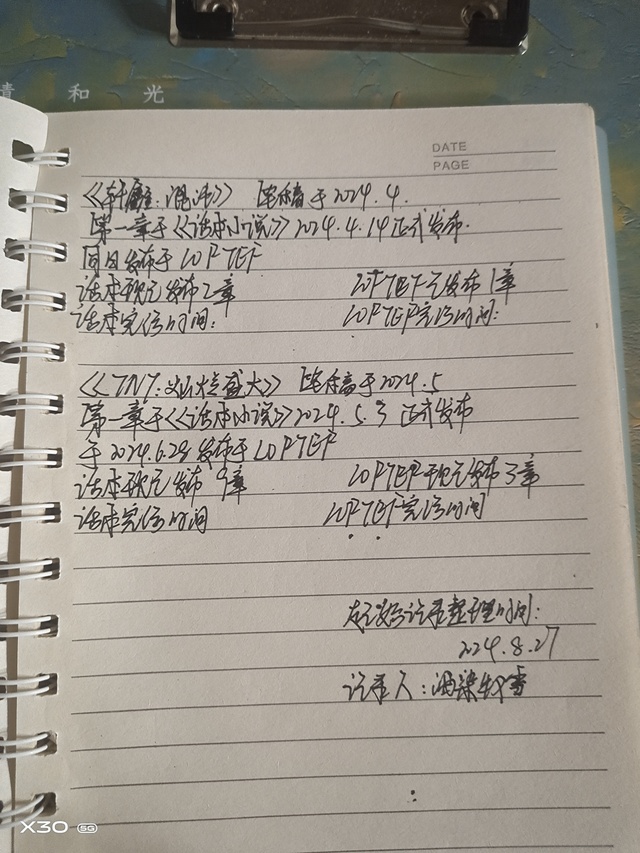 和 光
DATE
PAGE
《轩 混沌》 毕稿于2024.4.
第一章于《话本小说》2024.4.14正式发布.
同日发布于LOFTEF
话本现已发布2章 LOFTEF已发布1章
话本完结时间: LOFTEF完结时间:
《TNT:灿烂盛大》 毕稿于2024.5
第一章于《话本小说》2024.5.3 正式发布
于2024.6.29发布于LOFTEF
话本现已发布9章 LOFTEF现已发布3章
话本完结时间 LOFTEF完结时间
记录整理时间:
2024.8.27
记录人:酒染
X30 5G